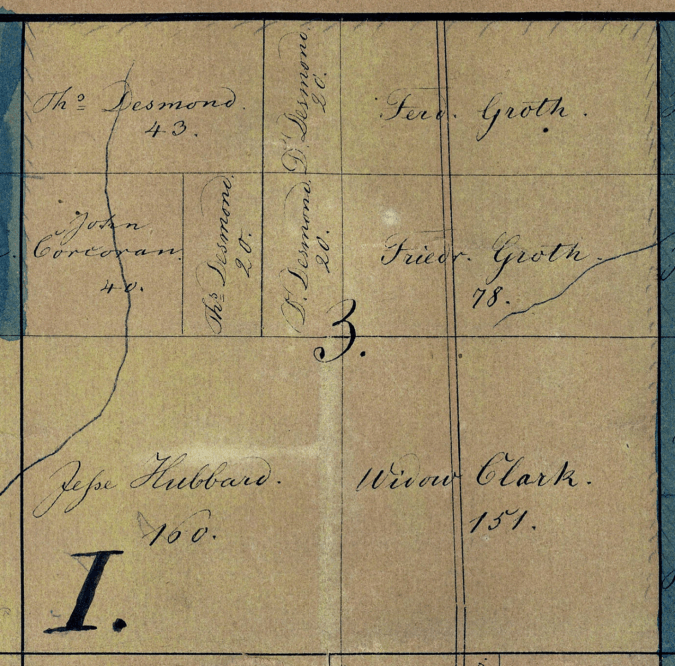 Thos Desmond.
43.
D. Desmond.
20.
Ferd. Groth.
John
Corcoran.
40.
Thos Desmond.
20.
D. Desmond.
20.
Friedr. Groth.
78.
3.
Jeſse Hubbard.
160.
Widow Clark.
151.
I.